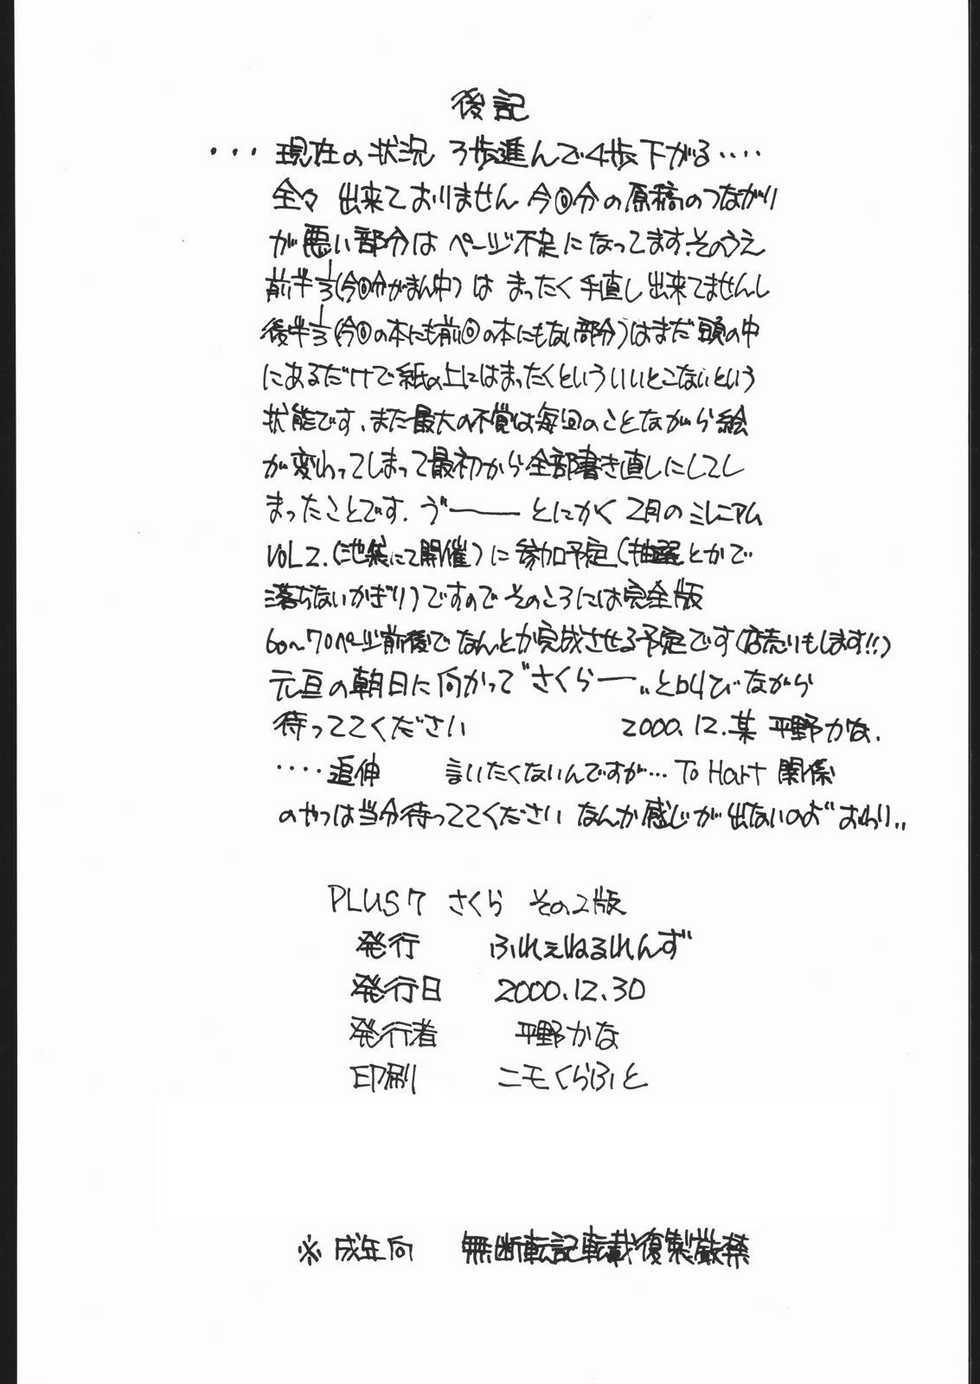 後記
・・・ 現在の状況 3歩進んで4歩下がる・・・・
全々 出来ておりません 今回分の原稿のつながり
が悪い部分は ページ不足になってます。そのうえ
前半1/3(今回分がまん中)は まったく手直し出来てませんし
後半1/3(今回の本にも前回の本にもない部分)はまだ頭の中
にあるだけで紙の上にはまったくといういいとこないという
状能です、また最大の不覚は毎回のことながら絵
が変わってしまって最初から全部書き直しにしてし
まったことです. ゔ―― とにかく 2月のミレニアム
VOL2.(池袋にて開催)に参加予定(抽選とかで
落ちないかぎり)ですので そのころには完全版
60〜70ページ前後でなんとか完成させる予定です(店売りもします!!)
元旦の朝日に向かって〝さくらー〟と叫びながら
待っててください 2000.12.某 平野かな.
・・・・追伸 言いたくないんですが… To Hart 関係
のやつは当分待っててください なんか感じが出ないのよ〃おわり..
PLUS7 さくら その2版
発行 ふれぇねるれんず
発行日 2000.12.30
発行者 平野かな
印刷 ニモくらふと
※成年向 無断転記転載復製厳禁